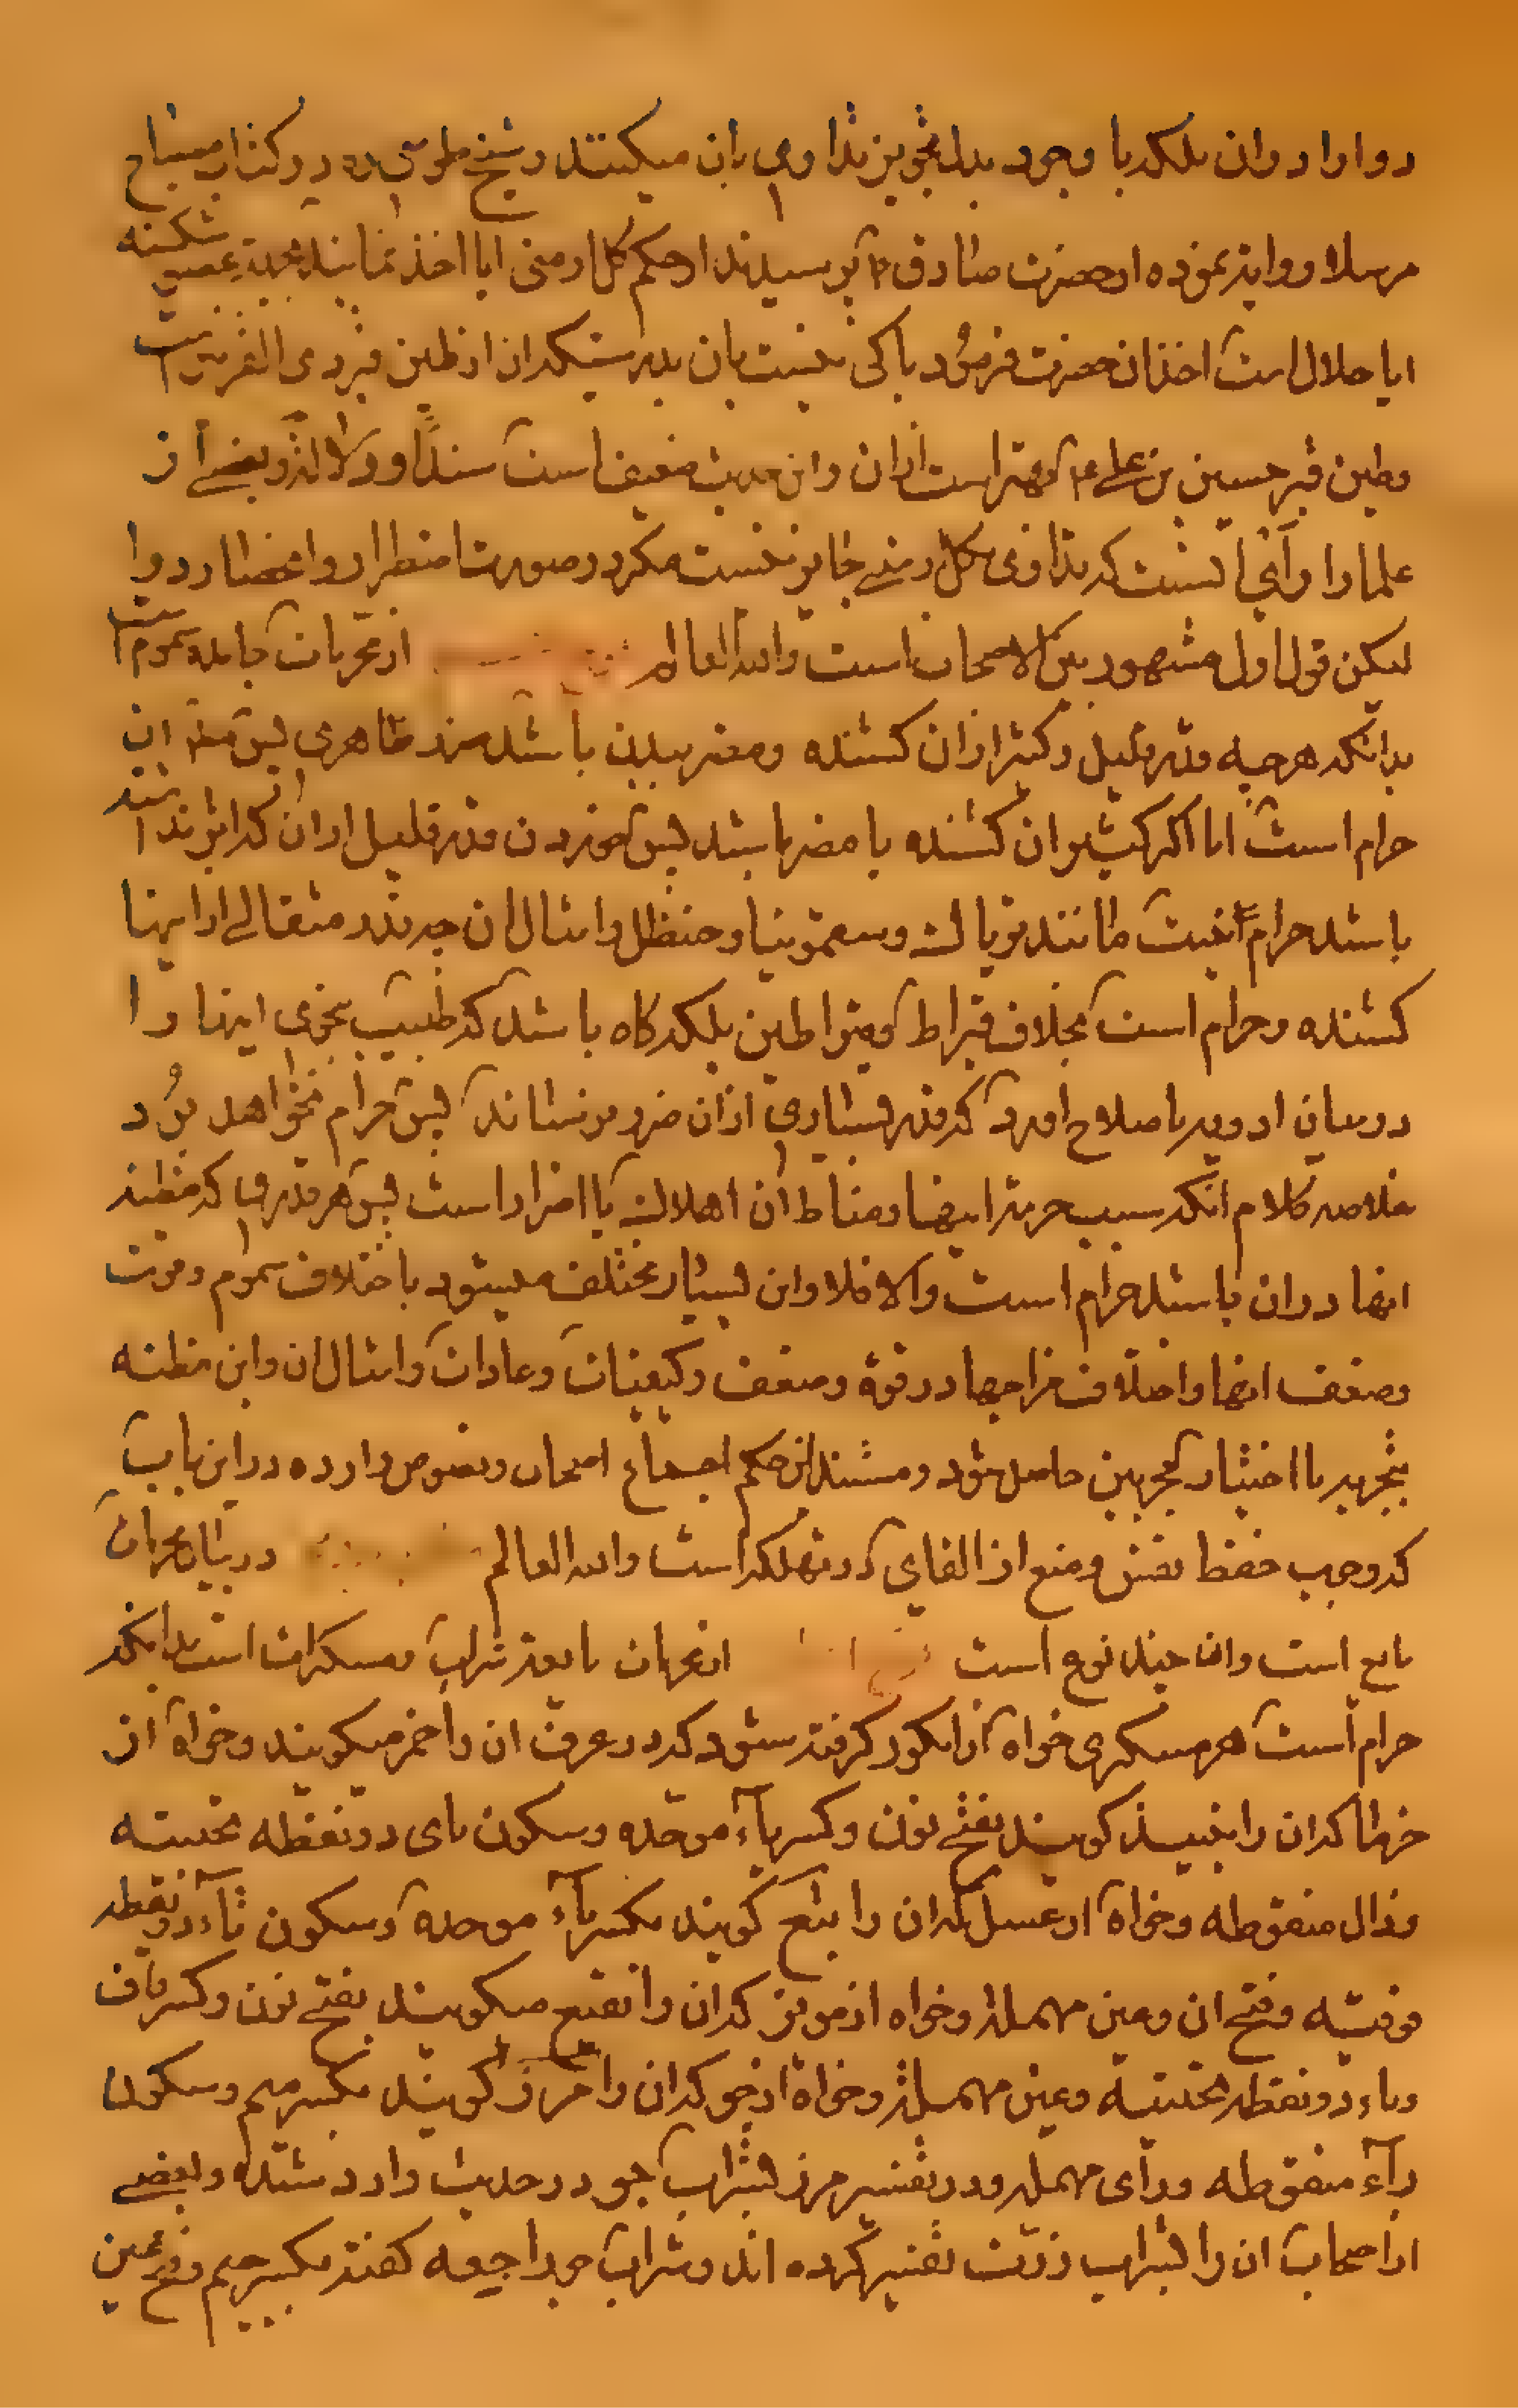 دوا را در ان بلکه با وجود بدل تجویز تداوی بان میکنند و شیخ طوسی ره در کتاب مصباح
مرسلا روایته نموده از حضرت صادق ع پرسیدند از حکم کل ارمنی ایا اخذ نمایند بجهة عضو شکسته
ایا حلال است اخذ ان حضرت فرمود باکی نیست بان بدرستیکه ان از طین قبر ذی القرنین است
وطین قبر حسین بن علی ع بهتر است از ان واین حدیث ضعیف است سندًا ودلالةً وبعضے از
علما را رأی انست که تداوی بکل ارمنے جایز نیست مکر در صورت اضطرار وانحصار دوا
لیکن قول اول مشهور بین الاصحاب است والله العالم از محرمات جامده سموم است
بدانکه هر چه قدر قلیل وکثیر از ان کشنده ومضر ببدن باشد ظاهری پس ان
حرام است اما اکر کثیر ان کشنده یا مضر باشد پس خوردن قدر قلیل از ان که اثر نداشته
باشد حرام نیست مانند تریاک وسقمونیا وحنظل وامثال ان چه قدر مثقالے از اینها
کشنده وحرام است بخلاف قیراط وقیراطین بلکه کاه باشد که طبیب بنحوی اینها را
در میان ادویه باصلاح اورد که قدر بسیاری از ان ضرر نرساند پس حرام نخواهد بود
خلاصه کلام انکه سبب حرمة اینها ومناط ان اهلاک یا اضرار است پس هر قدری که مظنه
انها در ان باشد حرام است والا فلا واین بسیار مختلف میشود باختلاف سموم وقوت
وضعف انها واختلاف مزاجها در قوة وضعف وکیفیات وعادات وامثال ان واین مظنه
بتجربه یا اخبار مجربین حاصل شود ومستند این حکم اجماع اصحاب ونصوص وارده در این باب
که وجوب حفظ نفس ومنع از القای در تهلکه است والله العالم در بیان محرمات
مایع است وان چند نوع است از محرمات مایعه شراب ومسکرات است بدانکه
حرام است هر مسکری خواه از انکور کرفته شود که در عرف ان را خمر میکویند وخواه از
خرما که ان را نبیذ کویند بفتح نون وکسر باء موحده وسکون یای دو نقطه تحتیته
وذال منقوطه وخواه از عسل که ان را بتع کویند بکسر باء موحده وسکون تاء دو نقطه
فوقیته وفتح ان وعین مهمله وخواه از مویز که ان را نقیع میکویند بفتح نون وکسر قاف
ویاء دو نقطه تحتیته وعین مهمله وخواه از جو که ان را مرز کویند بکسر میم وسکون
زاء منقوطه ورای مهمله ودر تفسیر مرز بشراب جو در حدیث وارد شده وبعضے
از اصحاب ان را بشراب ذرت تفسیر کرده اند وشراب جو را جعه کفته بکسر جیم وفتح عین